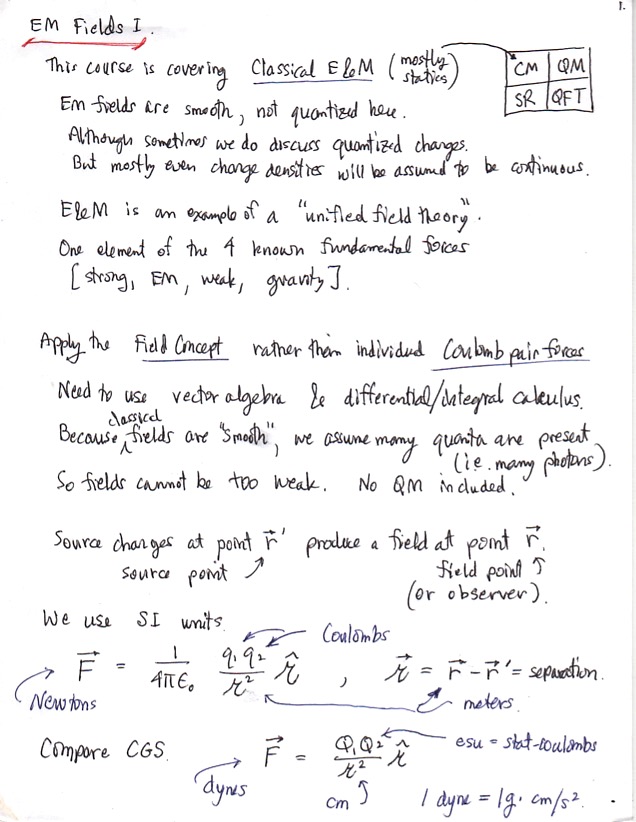 1.
EM Fields I.
This course is covering Classical E&M (mostly statics)
CM QM
SR QFT
EM fields are smooth, not quantized here.
Although sometimes we do discuss quantized charges.
But mostly even charge densities will be assumed to be continuous.
E&M is an example of a "unified field theory".
One element of the 4 known fundamental forces
[strong, EM, weak, gravity].
Apply the Field Concept rather than individual Coulomb pair forces
Need to use vector algebra & differential/integral calculus.
Because classical fields are "smooth", we assume many quanta are present
(i.e. many photons).
So fields cannot be too weak. No QM included.
Source charges at point r⃗' produce a field at point r⃗.
source point ↗ field point ↑
(or observer).
We use SI units.
Coulombs
F⃗ = 1/4πε₀ q₁q₂/𝓇² 𝓇̂ , 𝓇⃗ = r⃗ - r⃗' = separation.
Newtons meters.
Compare CGS. F⃗ = Q₁Q₂/𝓇² 𝓇̂ esu = stat-coulombs
dynes cm 1 dyne = 1g·cm/s².